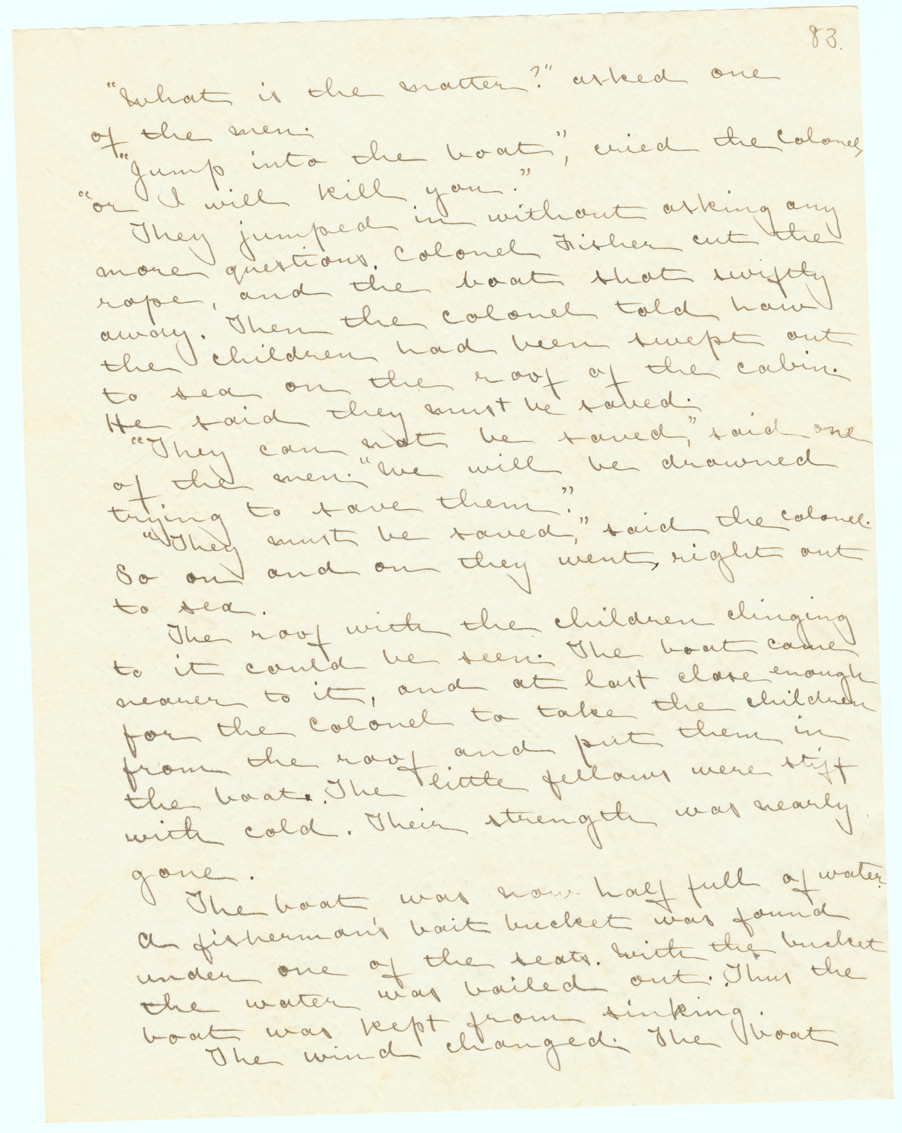 83.
"What is the matter?" asked one
of the men.
"Jump into the boat", cried the colonel,
"or I will kill you."
They jumped in without asking any
more questions. Colonel Fisher cut the
rope, and the boat shot swiftly
away. Then the colonel told how
the children had been swept out
to sea on the roof of the cabin.
He said they must be saved.
"They can not be saved," said one
of the men. "We will be drowned
trying to save them."
"They must be saved," said the colonel.
So on and on they went, right out
to sea.
The roof with the children clinging
to it could be seen. The boat came
nearer to it, and at last close enough
for the colonel to take the children
from the roof and put them in
the boat. The little fellows were stiff
with cold. Their strength was nearly
gone.
The boat was now half full of water.
A fisherman's bait bucket was found
under one of the seats. With the bucket
the water was bailed out. Thus the
boat was kept from sinking.
The wind changed. The boat